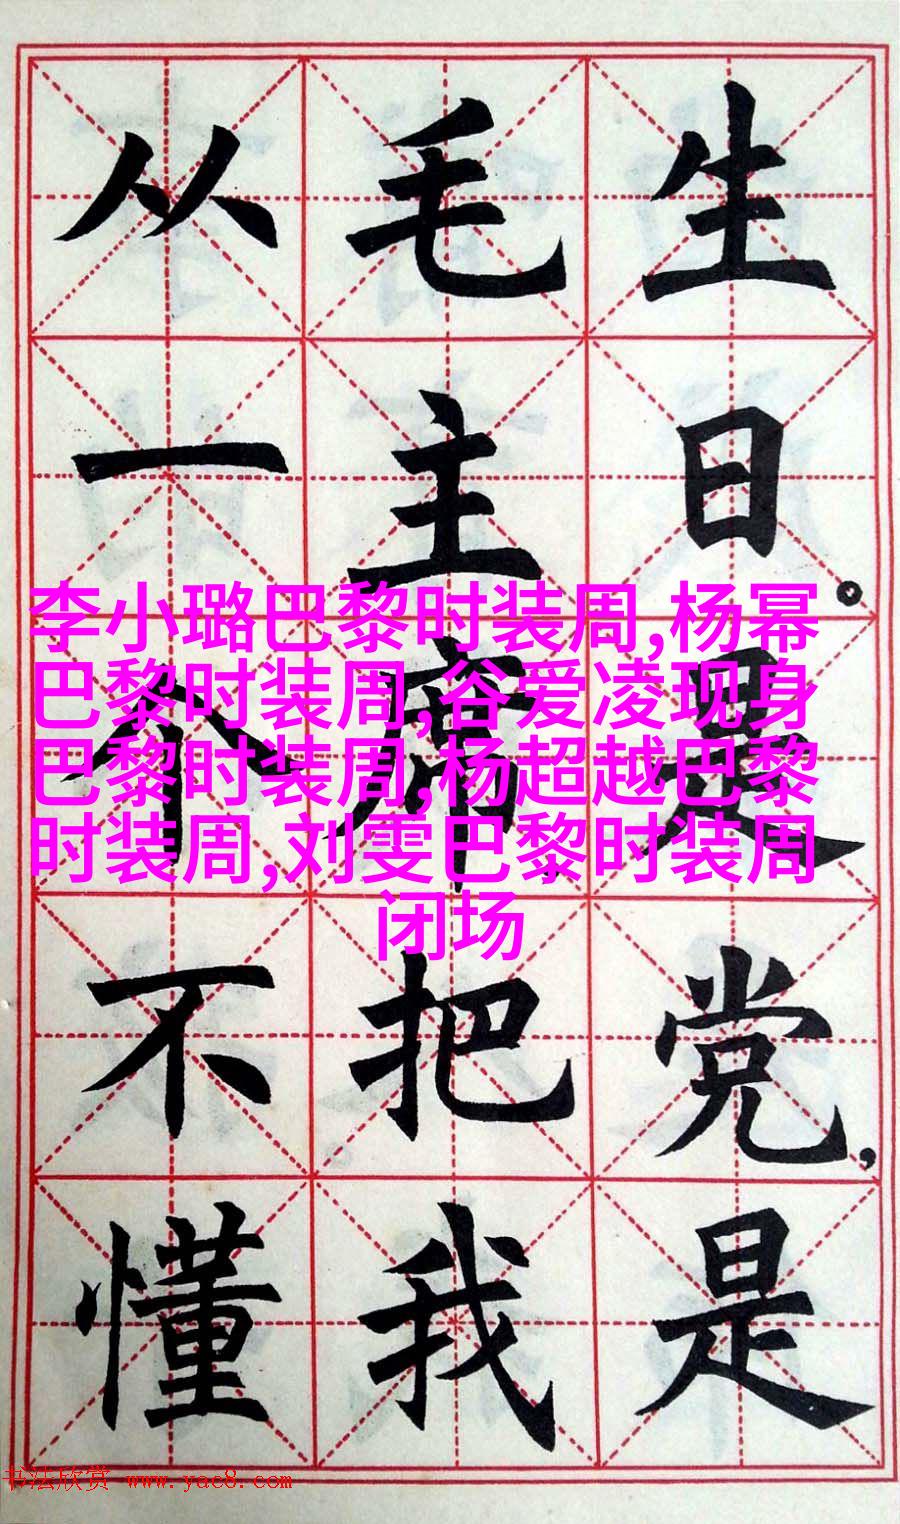 生日。是党,是
毛主席,把我
从一个不懂
李小璐巴黎时装周,杨幂
巴黎时装周,谷爱凌现身
巴黎时装周,杨超越巴黎
时装周,刘雯巴黎时装周
闭场
书法欣赏 www.yac8.com